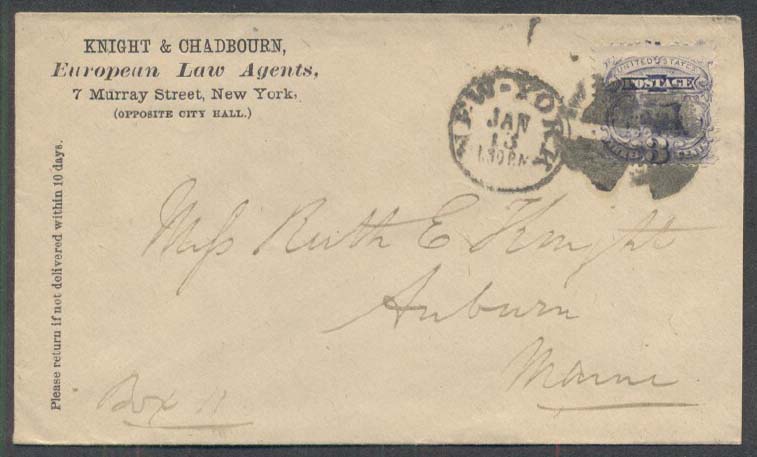 KNIGHT & CHADBOURN,
European Law Agents,
7 Murray Street, New York,
(OPPOSITE CITY HALL.)
Please return if not delivered within 10 days.
NEW-YORK
JAN
13
1.30PM
UNITED STATES
POSTAGE
3
Miss Ruth E Knight
Auburn
Maine
Box 11